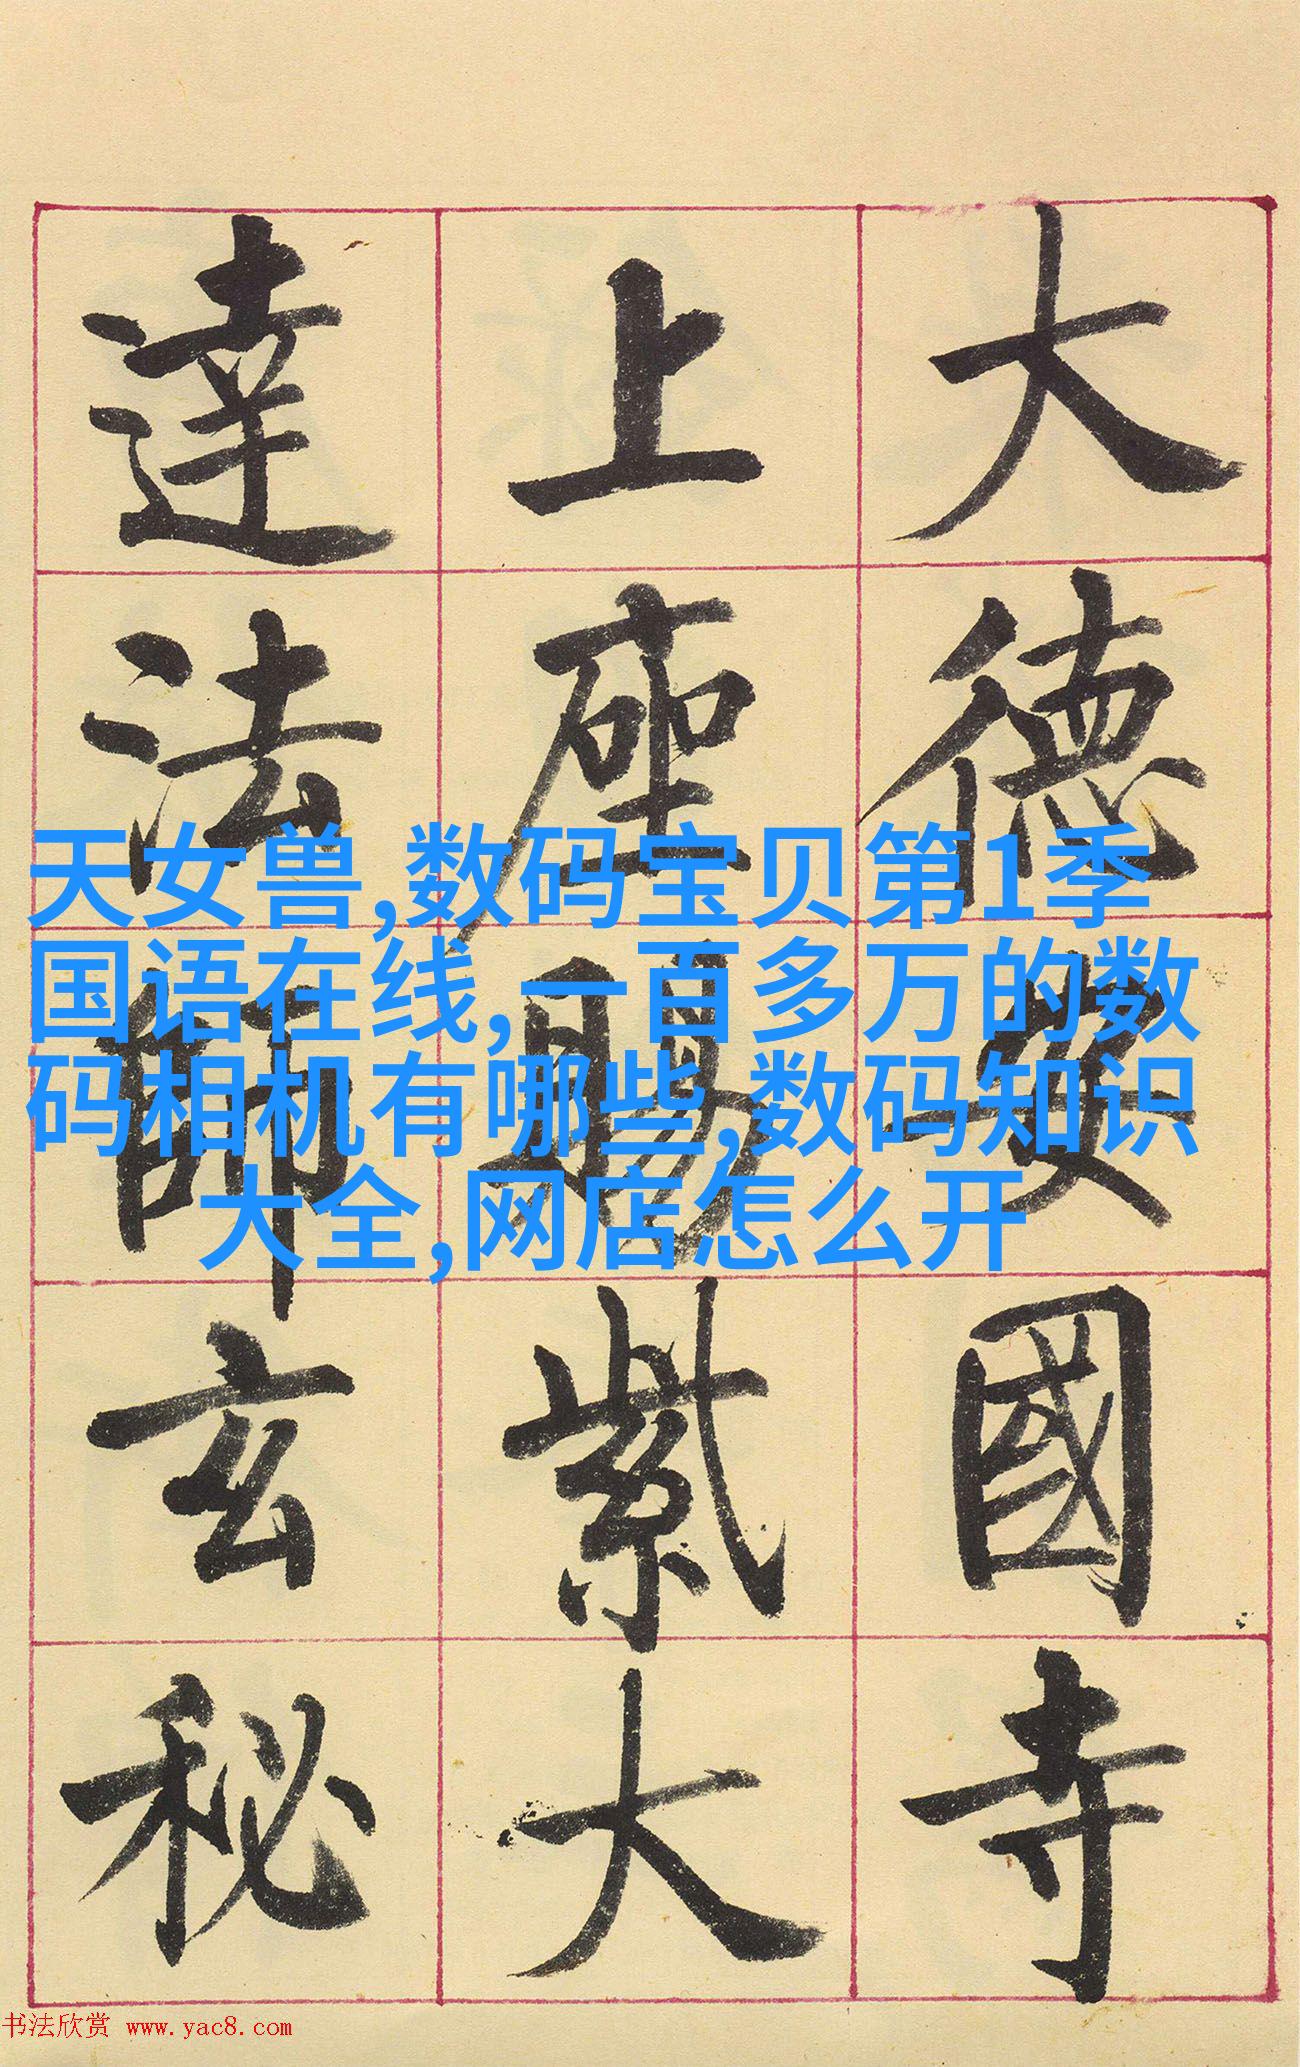 大德安國寺
上座賜紫大
達法師玄秘
天女兽,数码宝贝第1季
国语在线,一百多万的数
码相机有哪些,数码知识
大全,网店怎么开
书法欣赏 www.yac8.com